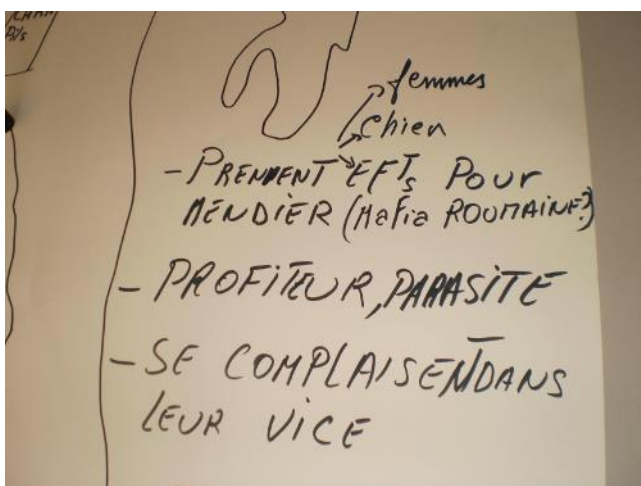 femmes
Chien
- PRENNENT EFTs POUr
MENDIER (Mafia ROUMAINE?)
- PROFITEUR, PARASITE
- SE COMPLAISENT DANS
LEUR VICE